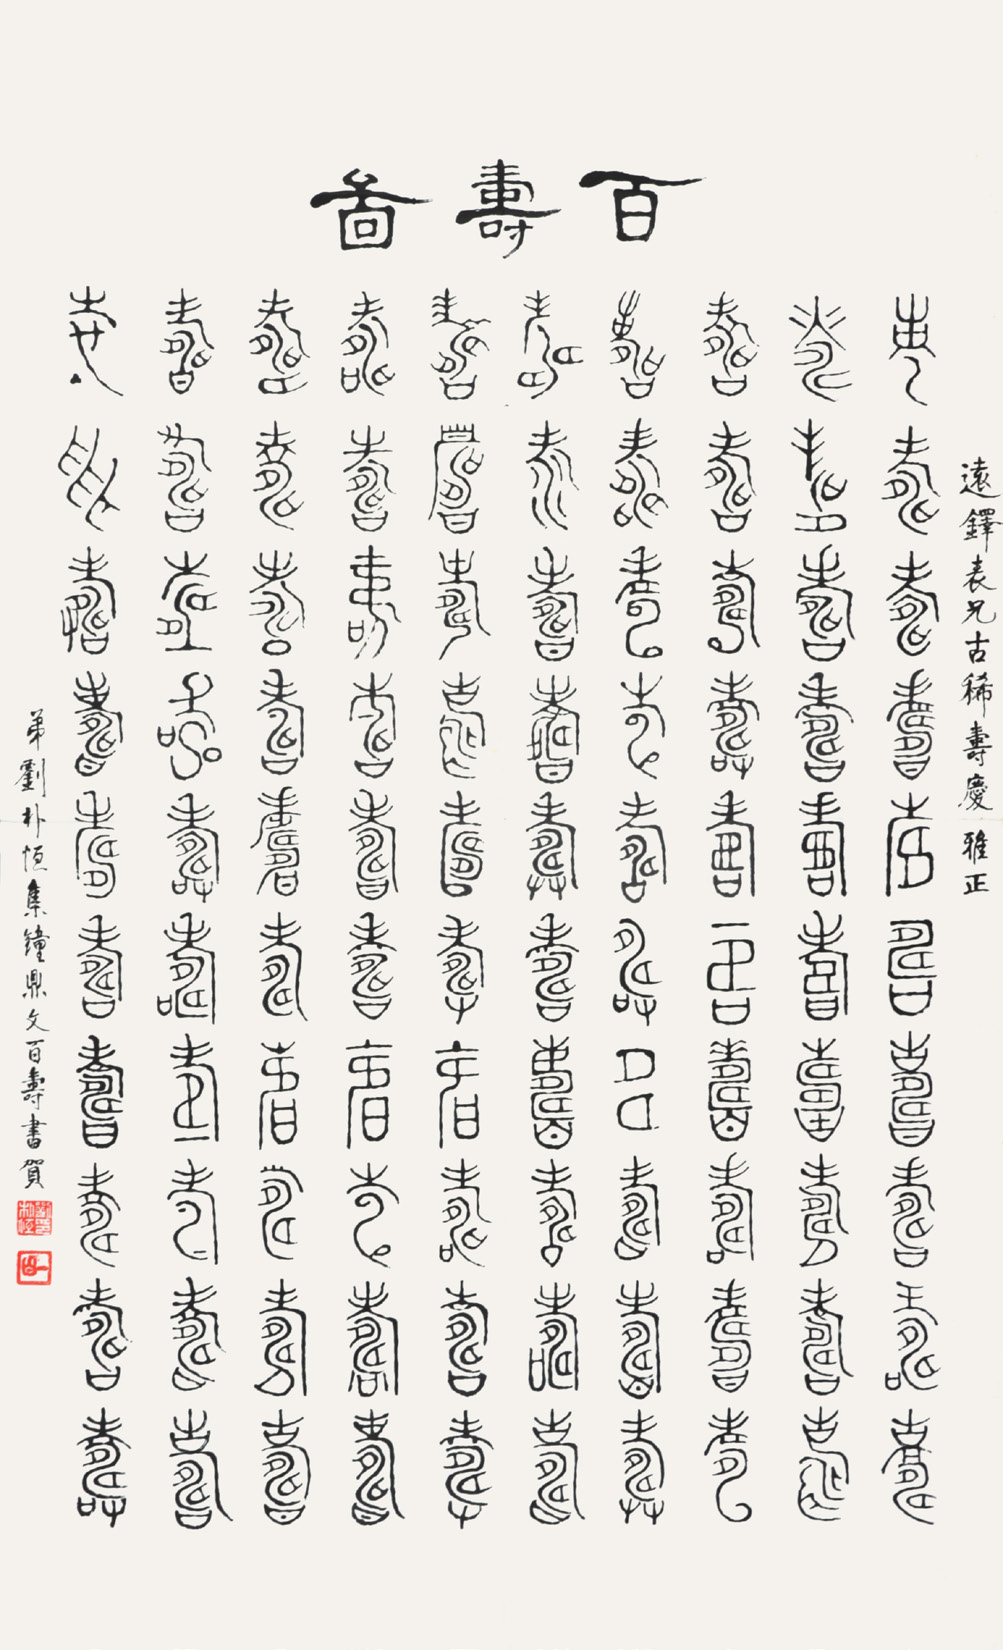 百壽圖
遠鐸表兄古稀壽慶 雅正
壽壽壽壽壽壽壽壽壽壽
壽壽壽壽壽壽壽壽壽壽
壽壽壽壽壽壽壽壽壽壽
壽壽壽壽壽壽壽壽壽壽
壽壽壽壽壽壽壽壽壽壽
壽壽壽壽壽壽壽壽壽壽
壽壽壽壽壽壽壽壽壽壽
壽壽壽壽壽壽壽壽壽壽
壽壽壽壽壽壽壽壽壽壽
壽壽壽壽壽壽壽壽壽壽
弟劉朴恒集鐘鼎文百壽書賀